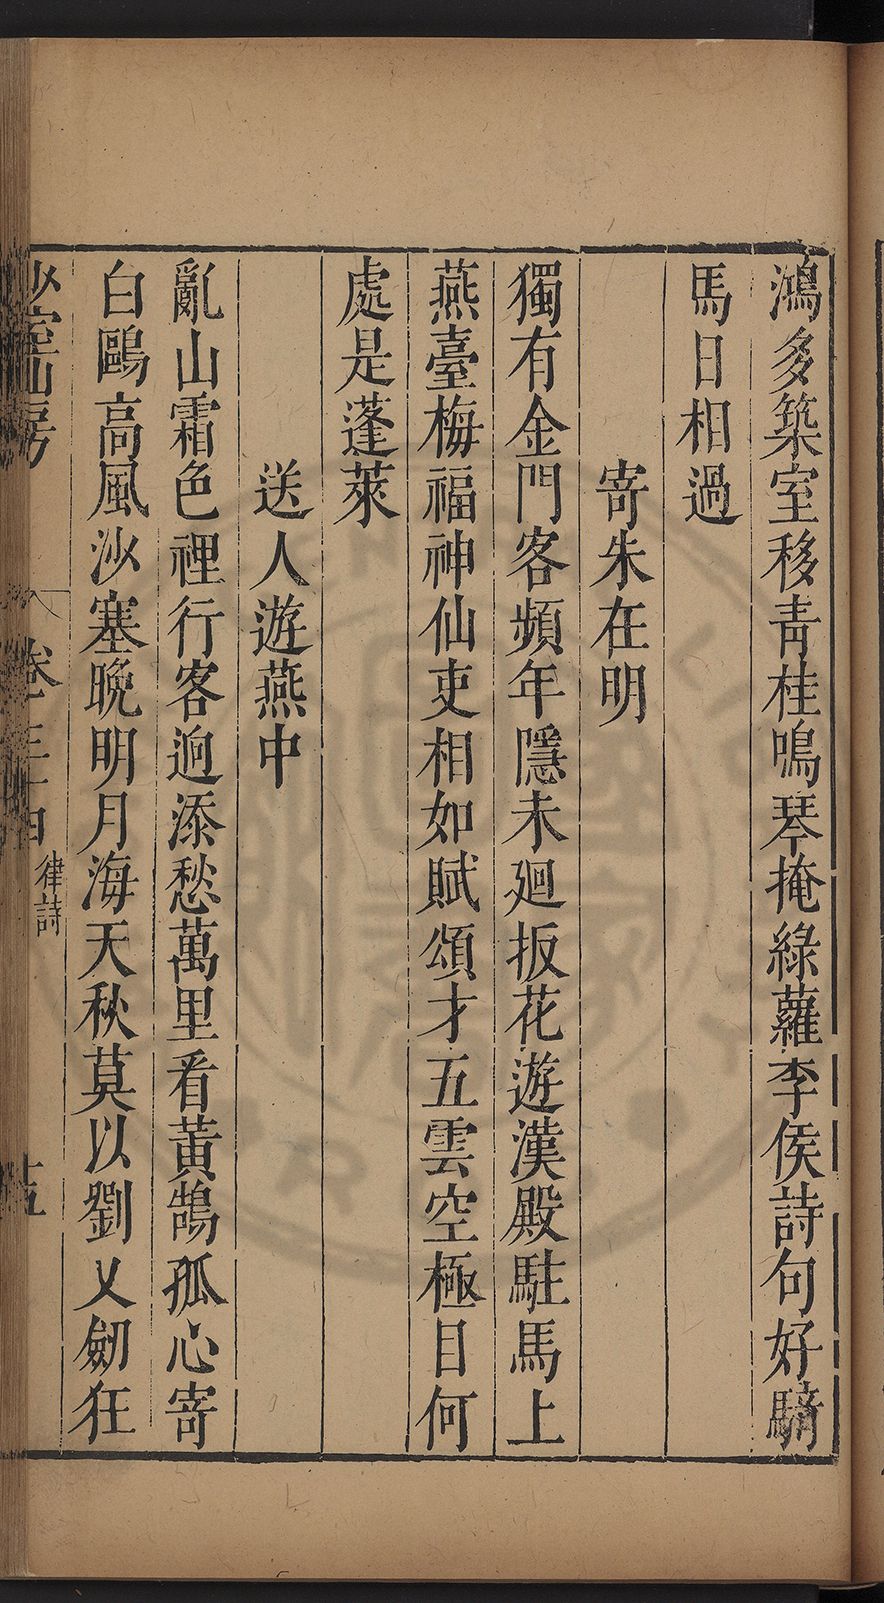 鴻多築室移青桂鳴琴掩綠蘿李侯詩句好騎
馬日相過
寄朱在明
獨有金門客頻年隱未廻扳花遊漢殿駐馬上
燕臺梅福神仙吏相如賦頌才五雲空極目何
處是蓬萊
送人遊燕中
亂山霜色裡行客迥添愁萬里看黃鵠孤心寄
白鷗高風沙塞晚明月海天秋莫以劉乂劒狂
山房
卷三十四
律詩